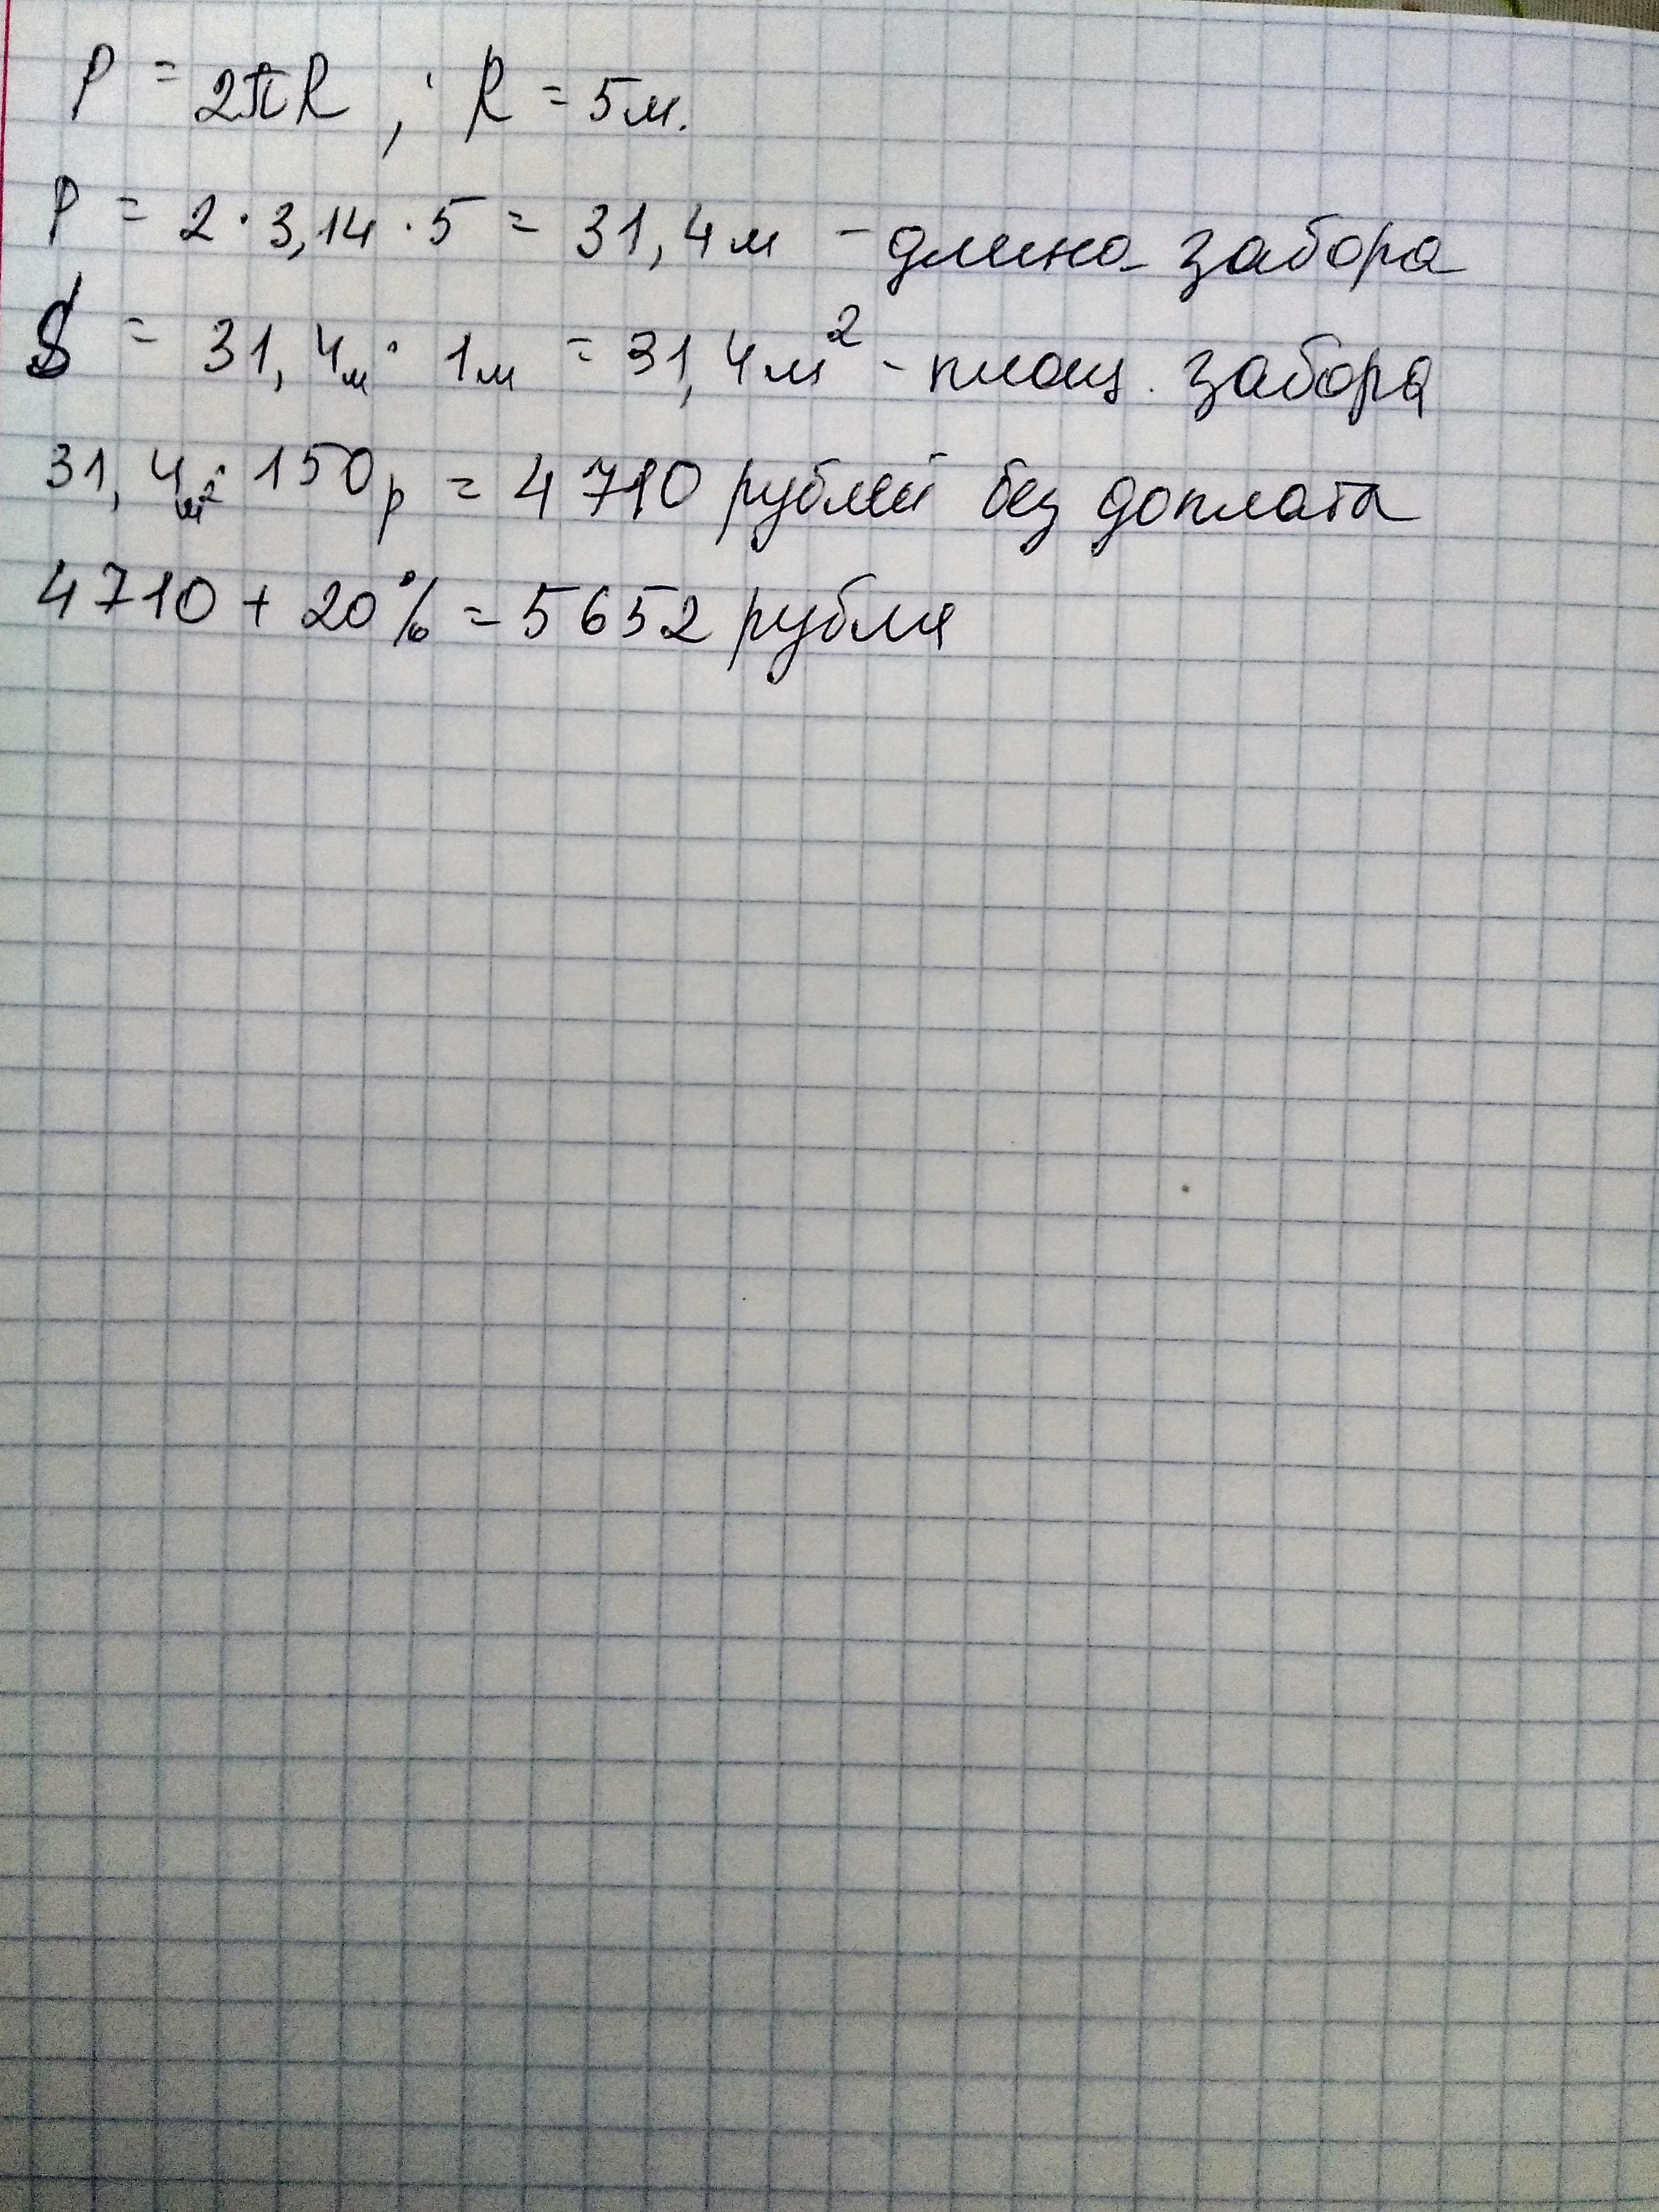 P = 2πR ; R = 5м.
P = 2 · 3,14 · 5 = 31,4м - длина забора
S = 31,4м · 1м = 31,4м² - площ. забора
31,4м² · 150р = 4710 рублей без доплата
4710 + 20% = 5652 рубля